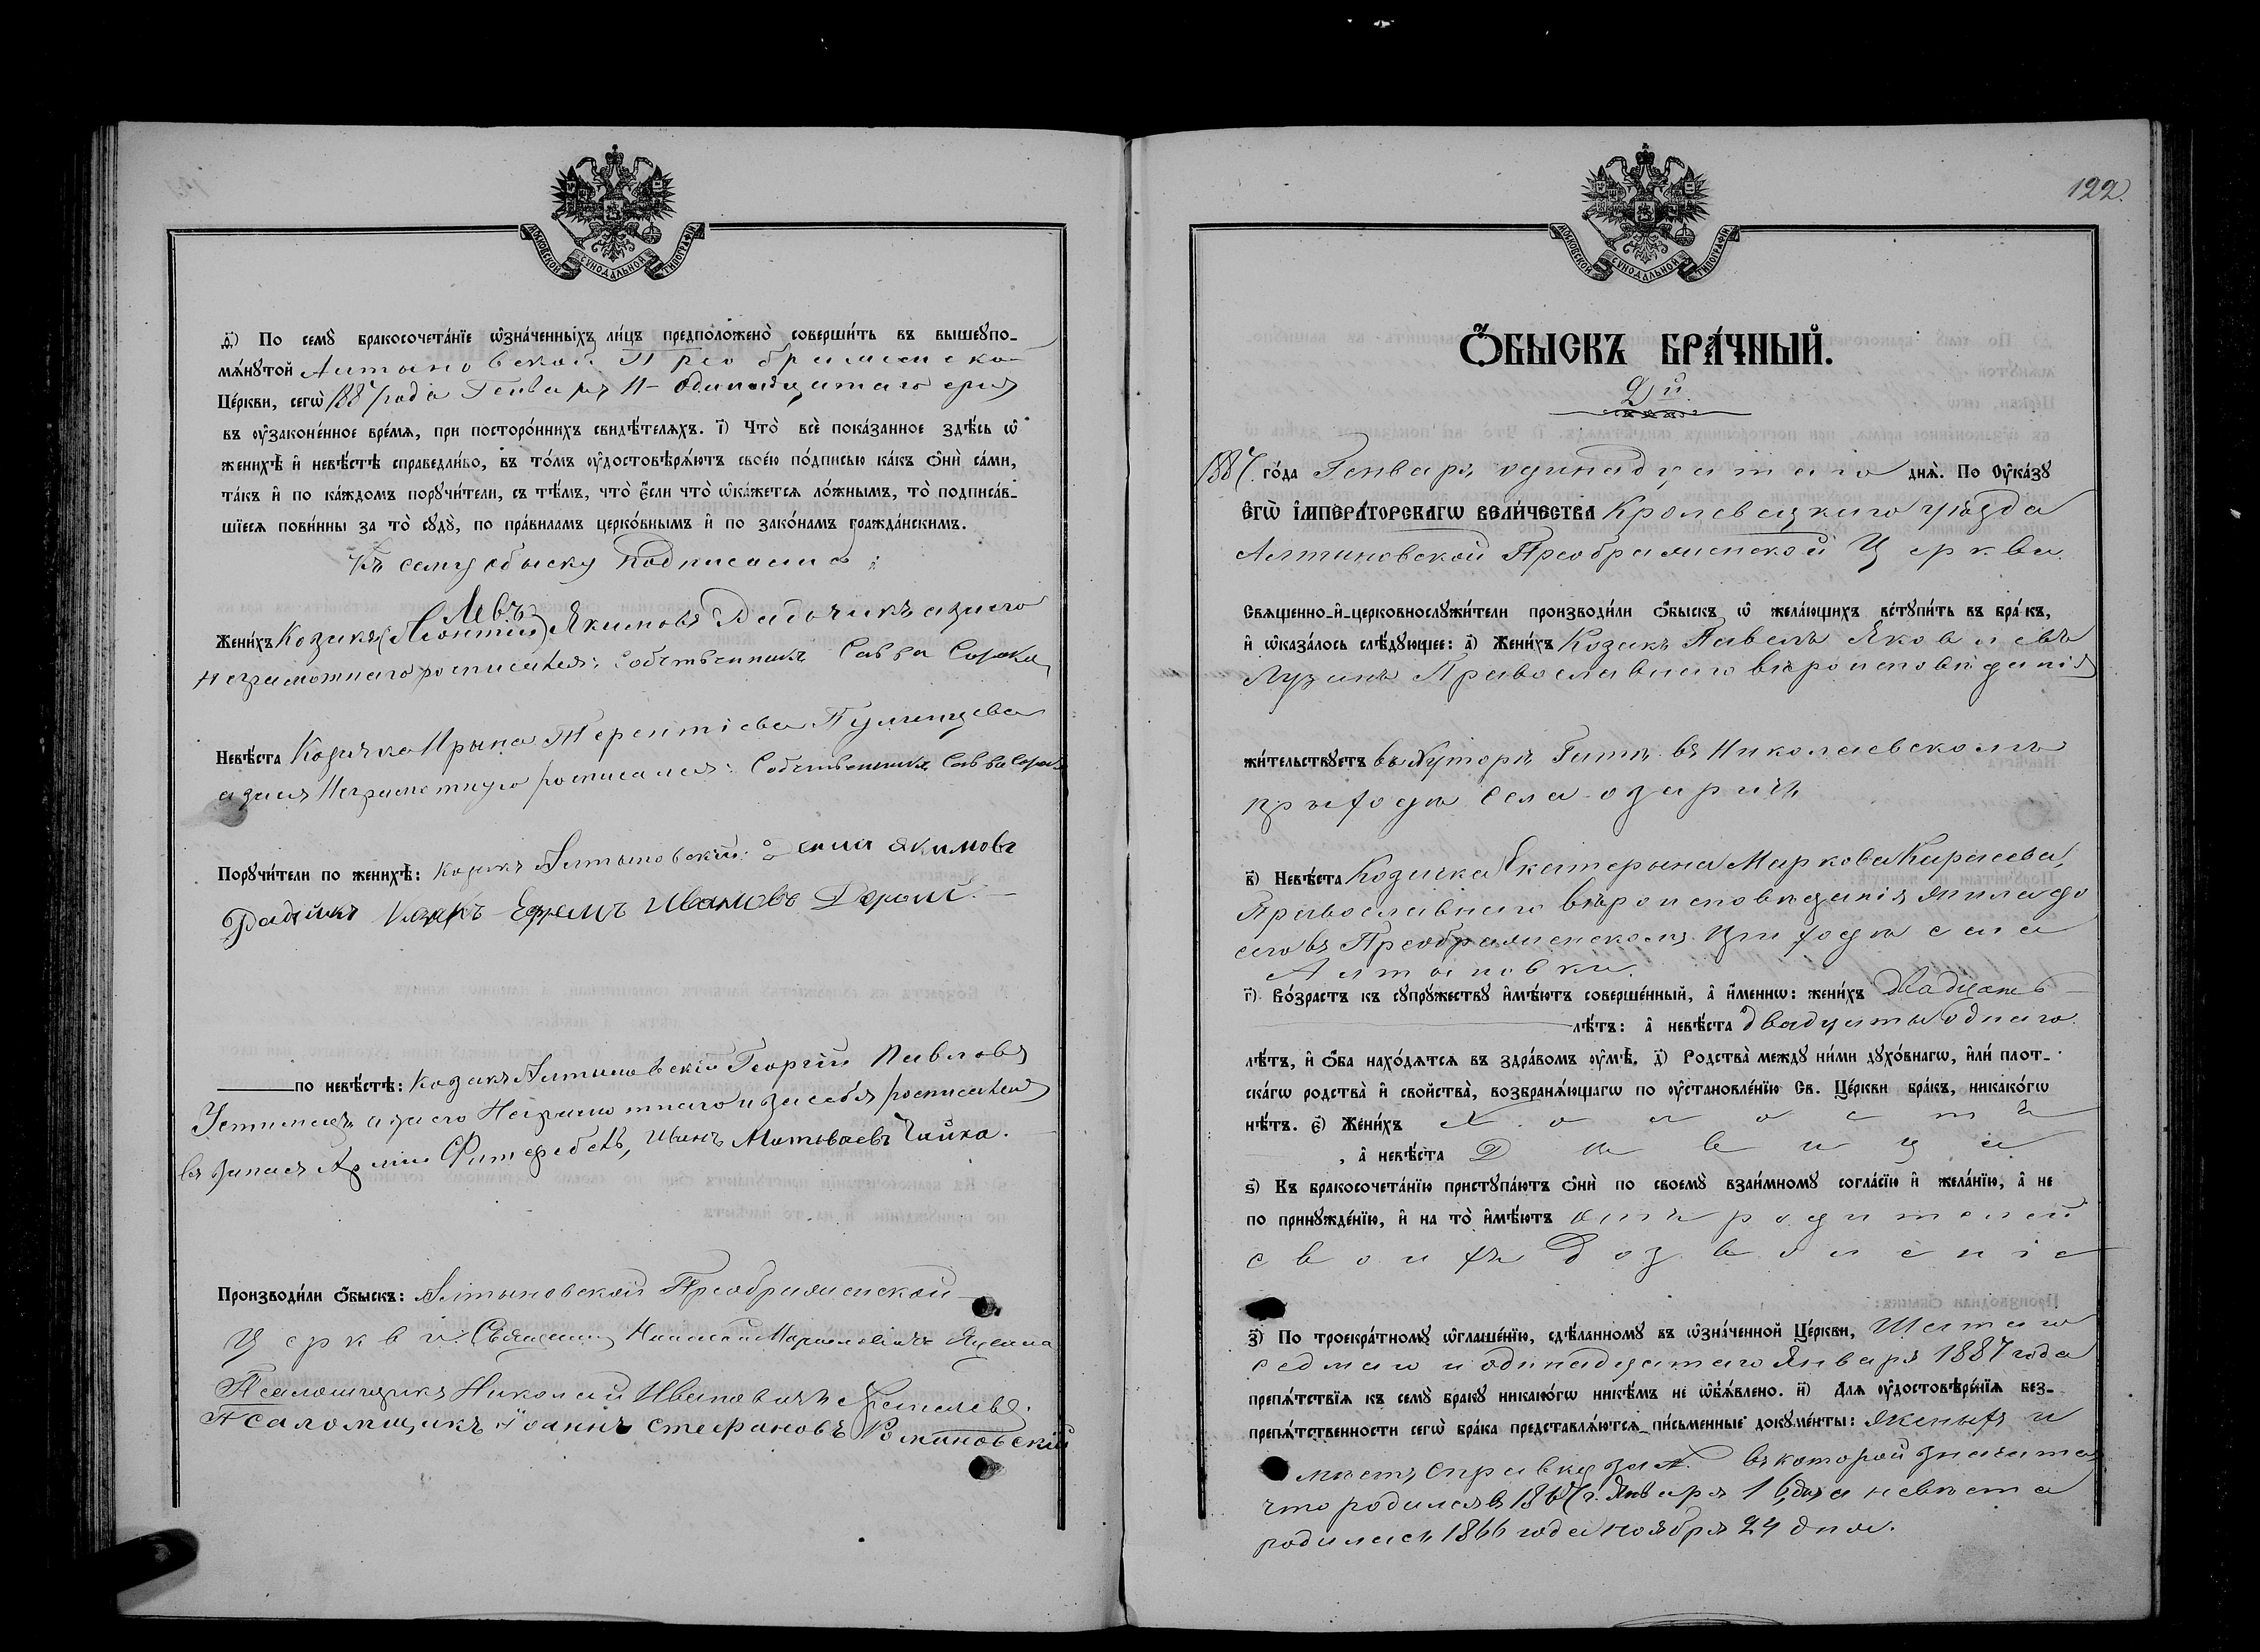 МОСКОВСКОЙ СѴНОДАЛЬНОЙ ТИПОГРАФІИ
д҃і) По семꙋ̀ бракосочета́нїе ѡ҆зна́ченныхъ ли́цъ предположено̀ соверши́ть въ вышеꙋпо-
мѧ́нꙋтой Алтыновской Преображенской
Це́ркви, сегѡ̀ 1887 года Генваря 11 одинадцатаго дня
въ ᲂу҆зако́ненное вре́мѧ, при посторо́ннихъ свидѣ́телѧхъ. і҃) Что̀ всѐ пока́занное здѣ́сь ѡ҆
женихѣ̀ и҆ невѣ́стѣ справедли́во, въ то́мъ ᲂу҆достовѣрѧ́ютъ свое́ю по́дписью ка́къ ѻ҆нѝ са́ми,
та́къ и҆ по ка́ждомъ порꙋчи́тели, съ тѣ́мъ, что̀ є҆́сли что̀ ѡ҆ка́жетсѧ ло́жнымъ, то̀ подписа́в-
шїесѧ пови́нны за то̀ сꙋдꙋ̀, по пра́виламъ церко́внымъ и҆ по зако́намъ гражда́нскимъ.
Къ сему обыску подписались:
Левъ
Жени́хъ Козакъ (Леонтій) Якимовъ а за него
неграмотнаго росписался: Собственникъ Савва Сорока
Невѣ́ста Козачка Ирына Терентіева
а за нея Неграмотную росписался: Собственникъ Савва Сорока
Порꙋчи́тели по женихѣ̀: Козакъ Алтыновскій: Якимовъ
Козакъ Ефремъ Ивановъ
по невѣ́стѣ: Козакъ Алтыновскій Георгій Павловъ
а за его Неграмотнаго и за себя росписался
въ запасѣ Арміи Иванъ Матвѣевъ Чайка.
Производи́ли ѻ҆́быскъ: Алтыновской Преображенской
Церкви Священникъ
Псаломщикъ Николай Ивановичъ
Псаломщикъ Іоаннъ Стефановъ Романовскій
122.
МОСКОВСКОЙ СѴНОДАЛЬНОЙ ТИПОГРАФІИ
Ѻ҆́БЫСКЪ БРА́ЧНЫЙ.
2й.
1887. го́да Генваря одинадцатаго днѧ̀. По ᲂу҆ка́зꙋ
Є҆ГѠ̀ И҆МПЕРА́ТОРСКАГѠ ВЕЛИ́ЧЕСТВА Кролевецкаго уѣзда
Алтыновской Преображенской Церкви
Свѧще́нно-и҆-церковнослꙋжи́тели производи́ли ѻ҆́быскъ ѡ҆ жела́ющихъ встꙋпи́ть въ бра́къ,
и҆ ѡ҆каза́лось слѣ́дꙋющее: а҃) Жени́хъ Козакъ Павелъ Яковлевъ
Лузанъ Православнаго вѣроисповѣданія
жи́тельствꙋетъ въ Хуторѣ въ Николаевскомъ
приходѣ села Озаричъ
в҃) Невѣ́ста Козачка Екатерына Маркова
Православнаго вѣроисповѣданія жила до
сего въ Преображенскомъ приходѣ села
Алтыновки.
г҃) Во́зрастъ къ сꙋпрꙋ́жествꙋ и҆мѣ́ютъ соверше́нный, а҆ и҆́меннѡ: жени́хъ двадцать
лѣ́тъ: а҆ невѣ́ста двадцать одного
лѣ́тъ, и҆ ѻ҆́ба нахо́дѧтсѧ въ здра́вомъ ᲂу҆мѣ̀. д҃) Родства̀ междꙋ ни́ми дꙋхо́внагѡ, и҆лѝ плот-
ска́гѡ родства̀ и҆ сво́йства̀, возбранѧ́ющагѡ по ᲂу҆становле́нїю Св. Це́ркви бра́къ, никако́гѡ
нѣ́тъ. є҃) Жени́хъ Холостъ
, а҆ невѣ́ста Дѣвица
ѕ҃) Къ бракосочета́нїю пристꙋпа́ютъ ѻ҆нѝ по своемꙋ̀ взаи́мномꙋ согла́сїю и҆ жела́нїю, а҆ не
по принꙋжде́нїю, и҆ на то̀ и҆мѣ́ютъ отъ родителей
своихъ дозволеніе
з҃) По троекра́тномꙋ ѡ҆глаше́нїю, сдѣ́ланномꙋ въ ѡ҆зна́ченной Це́ркви, Шестаго
седмаго и одинадцатаго Января 1887 года
препѧ́тствїѧ къ семꙋ̀ бра́кꙋ никако́гѡ никѣ́мъ не ѡ҆б̾ѧ́влено. и҃) Длѧ ᲂу҆достовѣре́нїѧ без-
препѧ́тственности сегѡ̀ бра́ка представлѧ́ютсѧ пи́сьменные докꙋме́нты: женыхъ и
мѣетъ справку за №. въ которой значится
что родился въ 1867 г. Января 16 дня а невѣста
родилась 1866 года ноября 24 дня.